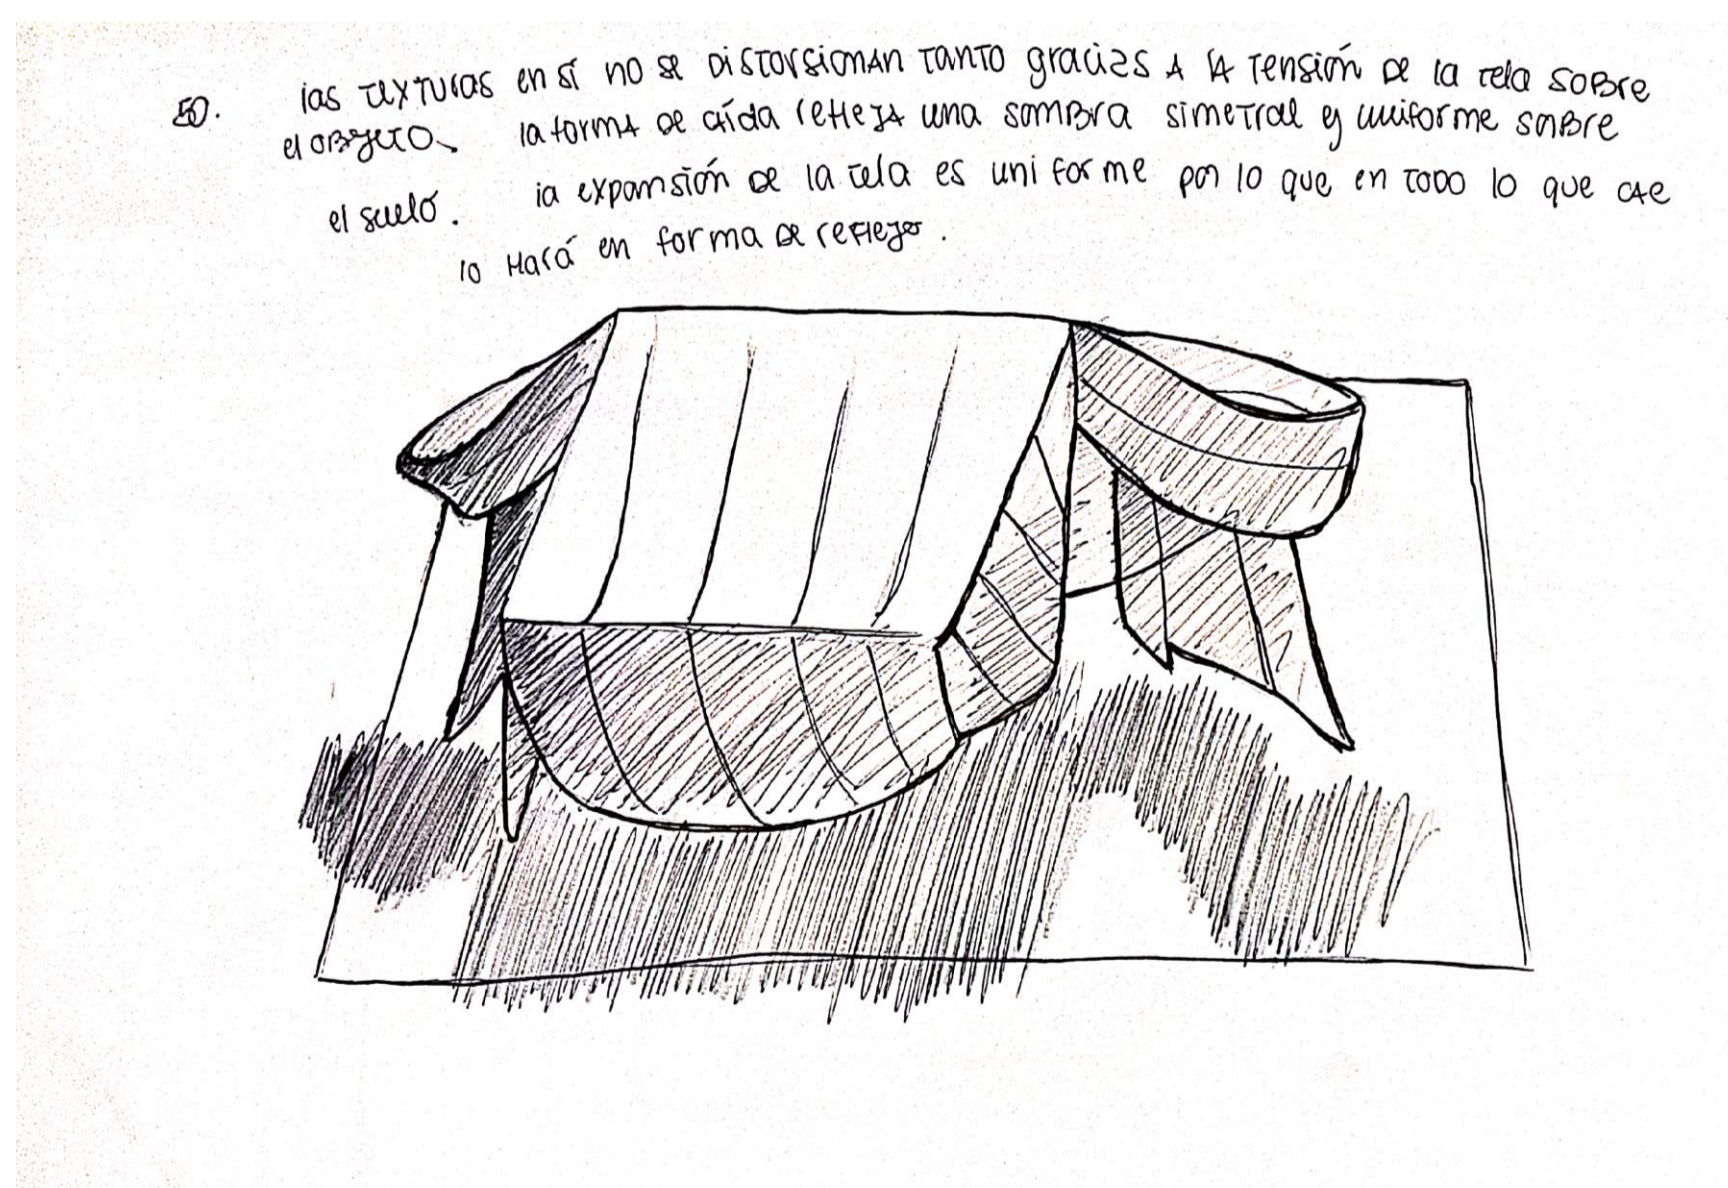 50. las texturas en sí no se distorsionan tanto gracias a la tensión de la tela sobre
el objeto. la forma de caída refleja una sombra simetral y uniforme sobre
el suelo. la expansión de la tela es uniforme por lo que en todo lo que cae
lo hará en forma de reflejo.